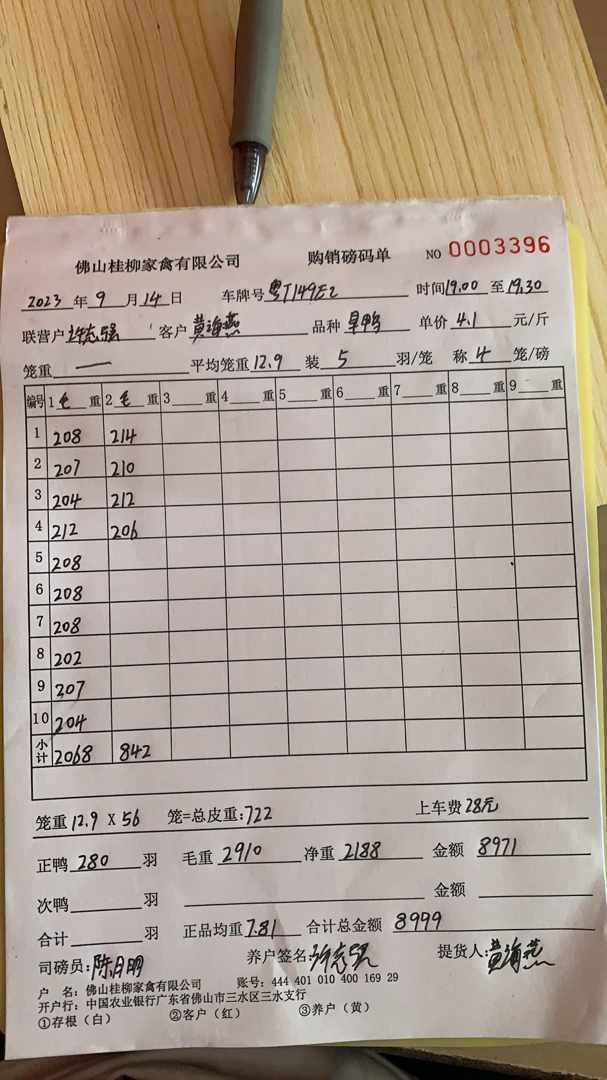 佛山桂柳家禽有限公司 购销磅码单 NO 0003396
2023 年 9 月 14 日 车牌号 粤T149E2 时间 19.00 至 19.30
联营户 许志强 客户 黄海燕 品种 旱鸭 单价 4.1 元/斤
笼重 一 平均笼重 12.9 装 5 羽/笼 称 4 笼/磅
编号 1 毛 重 2 毛 重 3 重 4 重 5 重 6 重 7 重 8 重 9 重
1 208 214
2 207 210
3 204 212
4 212 206
5 208
6 208
7 208
8 202
9 207
10 204
小计 2068 842
笼重 12.9 X 56 笼=总皮重:722 上车费 28元
正鸭 280 羽 毛重 2910 净重 2188 金额 8971
次鸭 羽 金额
合计 羽 正品均重 7.81 合计总金额 8999
司磅员: 陈月明 养户签名: 许志强 提货人: 黄海燕
户 名: 佛山桂柳家禽有限公司 账号: 444 401 010 400 169 29
开户行: 中国农业银行广东省佛山市三水区三水支行
①存根（白） ②客户（红） ③养户（黄）